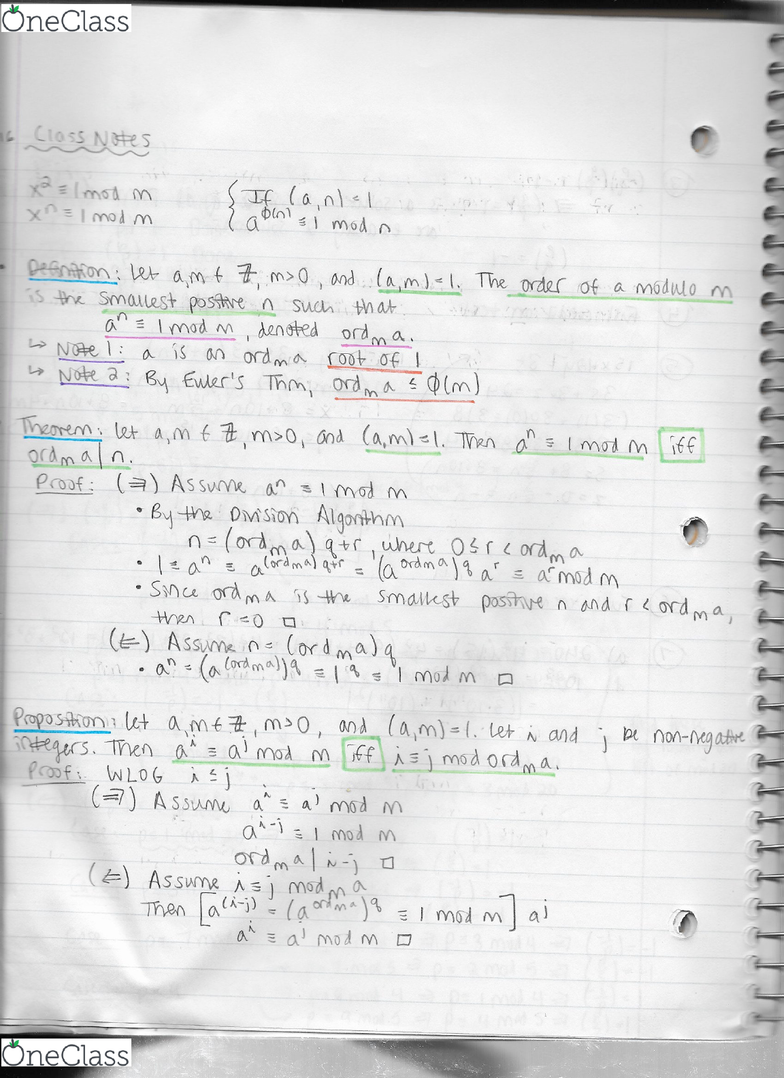 OneClass
Class Notes
x² ≡ 1 mod m { If (a,n)=1
xⁿ ≡ 1 mod m { a^ϕ(n) ≡ 1 mod n
Definition: Let a,m ∈ ℤ, m>0, and (a,m)=1. The order of a modulo m
is the smallest positive n such that
aⁿ ≡ 1 mod m, denoted ord_m a.
↳ Note 1: a is an ord_m a root of 1
↳ Note 2: By Euler's Thm, ord_m a ≤ ϕ(m)
Theorem: Let a,m ∈ ℤ, m>0, and (a,m)=1. Then aⁿ ≡ 1 mod m iff
ord_m a | n.
Proof: (⇒) Assume aⁿ ≡ 1 mod m
• By the Division Algorithm
n = (ord_m a) q+r, where 0≤r<ord_m a
• 1 ≡ aⁿ ≡ a^((ord_m a) q+r) = (a^(ord_m a))^q a^r ≡ a^r mod m
• Since ord_m a is the smallest positive n and r < ord_m a,
then r=0 □
(⇐) Assume n = (ord_m a) q
• aⁿ = (a^(ord_m a))^q ≡ 1^q ≡ 1 mod m □
Proposition: Let a,m ∈ ℤ, m>0, and (a,m)=1. Let i and j be non-negative
integers. Then a^i ≡ a^j mod m iff i ≡ j mod ord_m a.
Proof: WLOG i ≤ j
(⇒) Assume a^i ≡ a^j mod m
a^(i-j) ≡ 1 mod m
ord_m a | i-j □
(⇐) Assume i ≡ j mod_m a
Then [a^(i-j) = (a^(ord_m a))^q ≡ 1 mod m] a^j
a^i ≡ a^j mod m □
OneClass